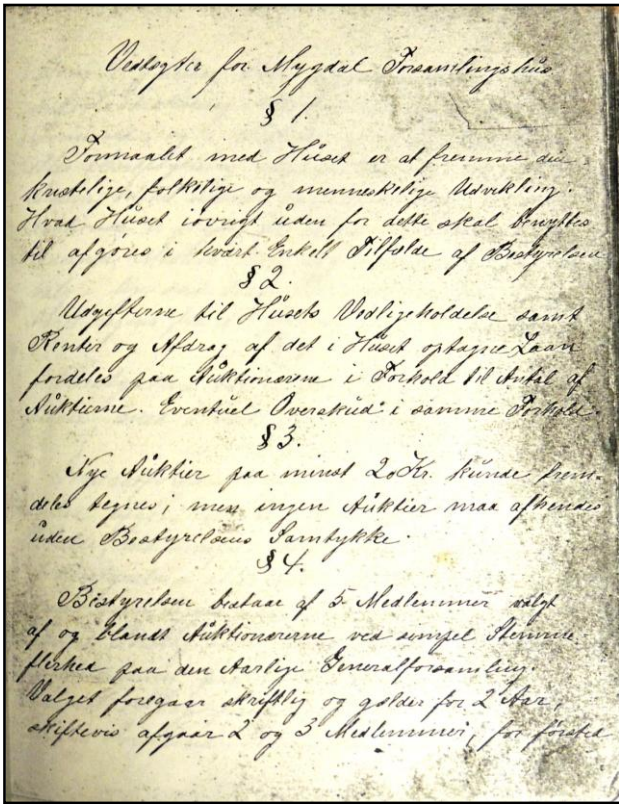 Vedtægter for Mygdal Forsamlingshus
§ 1.
Formaalet med Huset er at fremme den
kristelige, folkelige og menneskelige Udvikling.
Hvad Huset iøvrigt uden for dette skal benyttes
til afgøres i hvært Enkelt Tilfælde af Bestyrelsen
§ 2.
Udgifterne til Husets Vedligeholdelse samt
Renter og Afdrag af det i Huset optagne Laan
fordeles paa Auktionærene i Forhold til Antal af
Auktierne. Eventuel Overskud i samme Forhold.
§ 3.
Nye Auktier paa minst 20 Kr. kunde frem-
deles tegnes; men ingen Auktier maa afhendes
uden Bestyrelsens Samtykke.
§ 4.
Bestyrelsen bestaar af 5 Medlemmer valgt
af og blandt Auktionærerne ved simpel Stemme
flerhed paa den Aarlige Generalforsamling.
Valget foregaar skriftlig og gælder for 2 Aar,
skiftevis afgaar 2 og 3 Medlemmer, for første